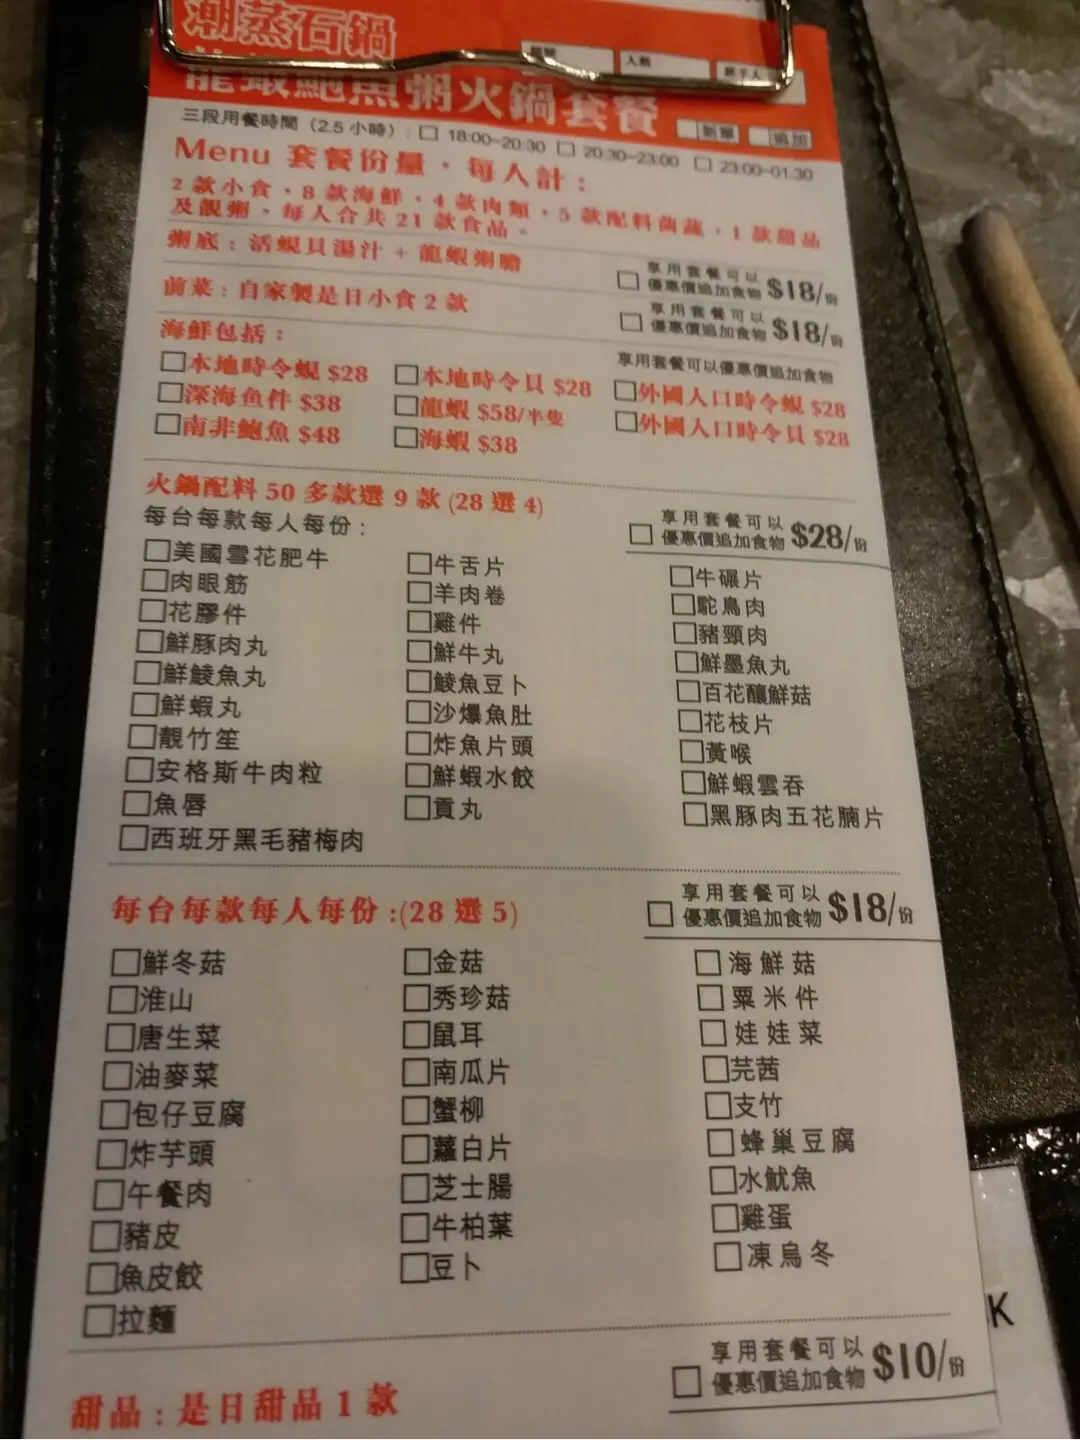 潮蒸石鍋
人數
龍蝦鮑魚粥火鍋套餐
新單 追加
三段用餐時間（2.5 小時）: 18:00~20:30 20:30~23:00 23:00~01:30
Menu 套餐份量，每人計：
2 款小食，8 款海鮮，4 款肉類，5 款配料菌蔬，1 款甜品
及靚粥，每人合共 21 款食品。
粥底：活蜆貝湯汁 + 龍蝦粥膽
享用套餐可以
優惠價追加食物 $18/份
前菜：自家製是日小食 2 款
享用套餐可以
優惠價追加食物 $18/份
海鮮包括：
享用套餐可以優惠價追加食物
本地時令蜆 $28 本地時令貝 $28 外國入口時令蜆 $28
深海魚件 $38 龍蝦 $58/半隻 外國入口時令貝 $28
南非鮑魚 $48 海蝦 $38
火鍋配料 50 多款選 9 款 (28 選 4)
每台每款每人每份：
享用套餐可以
優惠價追加食物 $28/份
美國雪花肥牛 牛舌片 牛碾片
肉眼筋 羊肉卷 駝鳥肉
花膠件 雞件 豬頸肉
鮮豚肉丸 鮮牛丸 鮮墨魚丸
鮮鯪魚丸 鯪魚豆卜 百花釀鮮菇
鮮蝦丸 沙爆魚肚 花枝片
靚竹笙 炸魚片頭 黃喉
安格斯牛肉粒 鮮蝦水餃 鮮蝦雲吞
魚唇 貢丸 黑豚肉五花腩片
西班牙黑毛豬梅肉
每台每款每人每份 :(28 選 5)
享用套餐可以
優惠價追加食物 $18/份
鮮冬菇 金菇 海鮮菇
淮山 秀珍菇 粟米件
唐生菜 鼠耳 娃娃菜
油麥菜 南瓜片 芫茜
包仔豆腐 蟹柳 支竹
炸芋頭 蘿白片 蜂巢豆腐
午餐肉 芝士腸 水魷魚
豬皮 牛柏葉 雞蛋
魚皮餃 豆卜 凍烏冬
拉麵
享用套餐可以
優惠價追加食物 $10/份
甜品：是日甜品 1 款
K